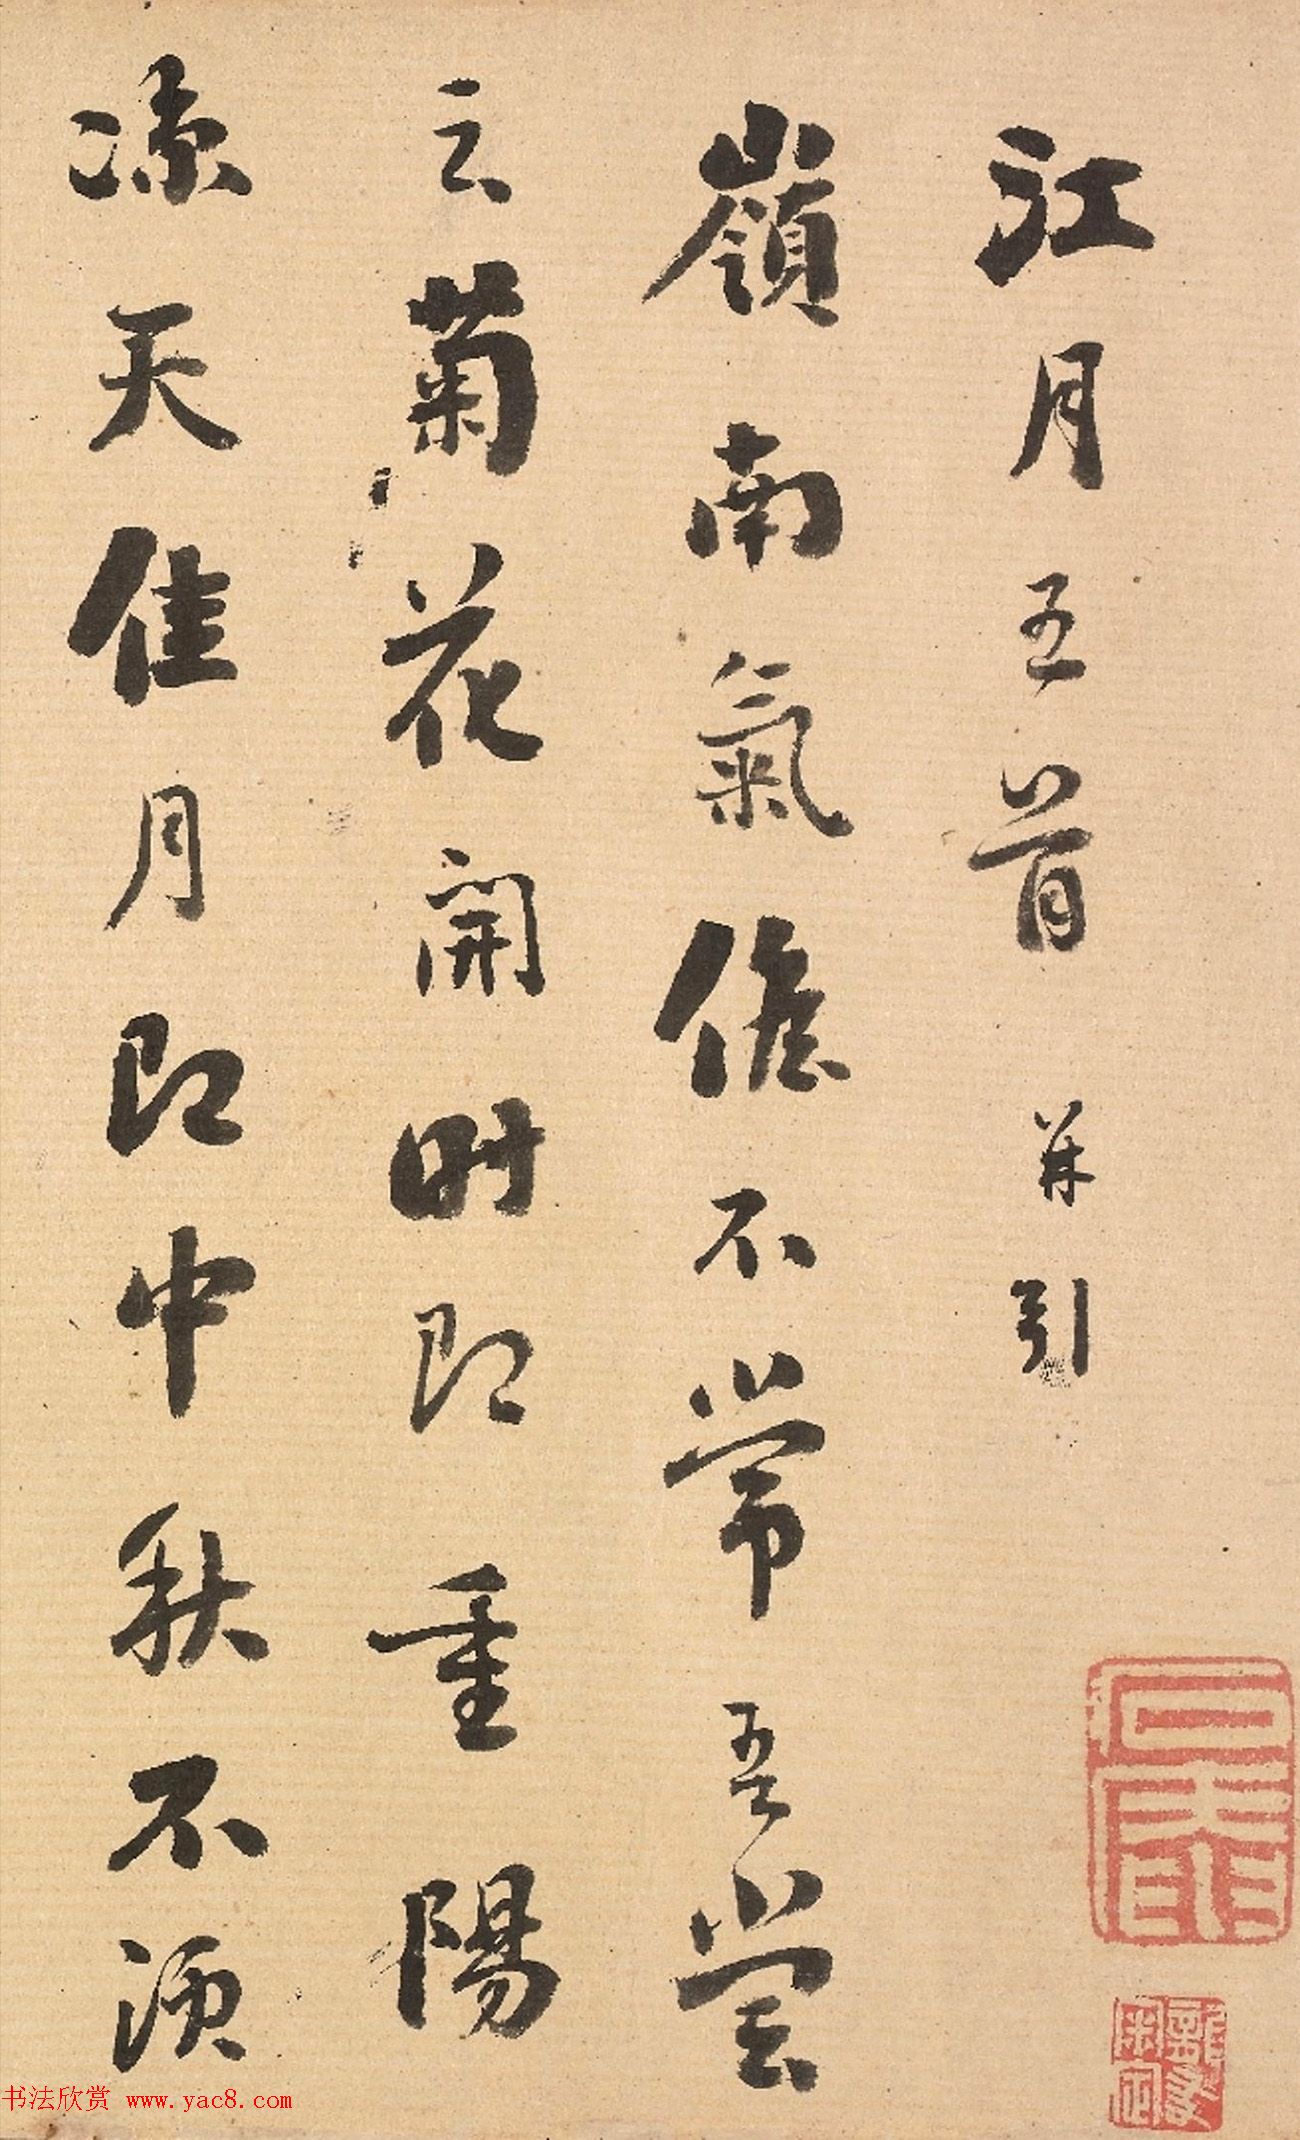 江月五首 并引
嶺南氣不常吾嘗
云菊花開時即重陽
凉天佳月即中秋不須
书法欣赏 www.yac8.com